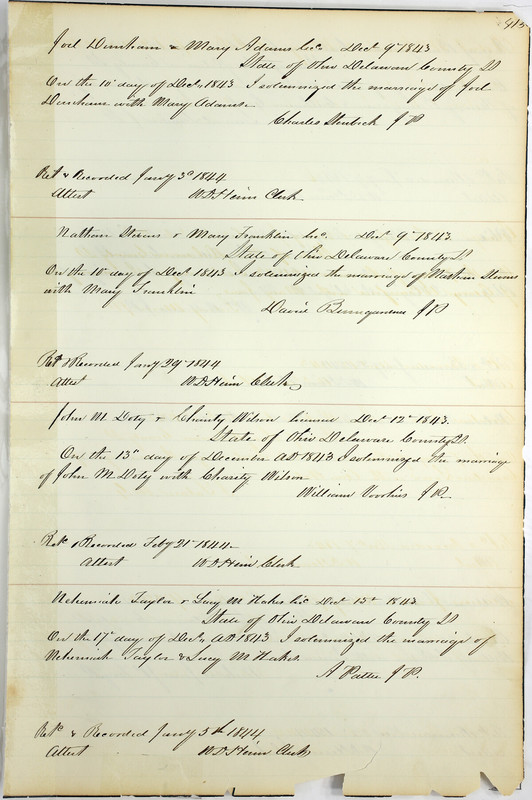 413
Joel Dunham & Mary Adams Lic. Dect 9th 1843
State of Ohio Delaware County SS
On the 10th day of Decr 1843 I solemnized the marriage of Joel
Dunham with Mary Adams
Charles J P
Ret & Recorded Jany 3d 1844
Attest W D Heim Clerk
Nathan Stevens & Mary Franklin Lic. Dec. 9th 1843
State of Ohio Delaware County SS
On the 10th day of Dect 1843 I solemnized the marriage of Nathan Stevens
with Mary Franklin
David Bumgardner J P
Ret & Recorded Jany 29th 1844
Attest W D Heim Clerk
John M Doty & Charity Wilson license Dec 12th 1843.
State of Ohio Delaware County SS.
On the 13th day of December AD 1843 I solemnized the marriage
of John M Doty with Charity Wilson
William Voorhies J P.
Ret & Recorded Feby 21st 1844
Attest W D Heim Clerk
Nehemiah Taylor & Lucy M Hakes Lic Dect 15th 1843
State of Ohio Delaware County SS
On the 17th day of Decr AD 1843 I solemnized the marriage of
Nehemiah Taylor & Lucy M Hakes.
A Pattee J P.
Ret & Recorded Jany 5th 1844
Attest W D Heim Clerk